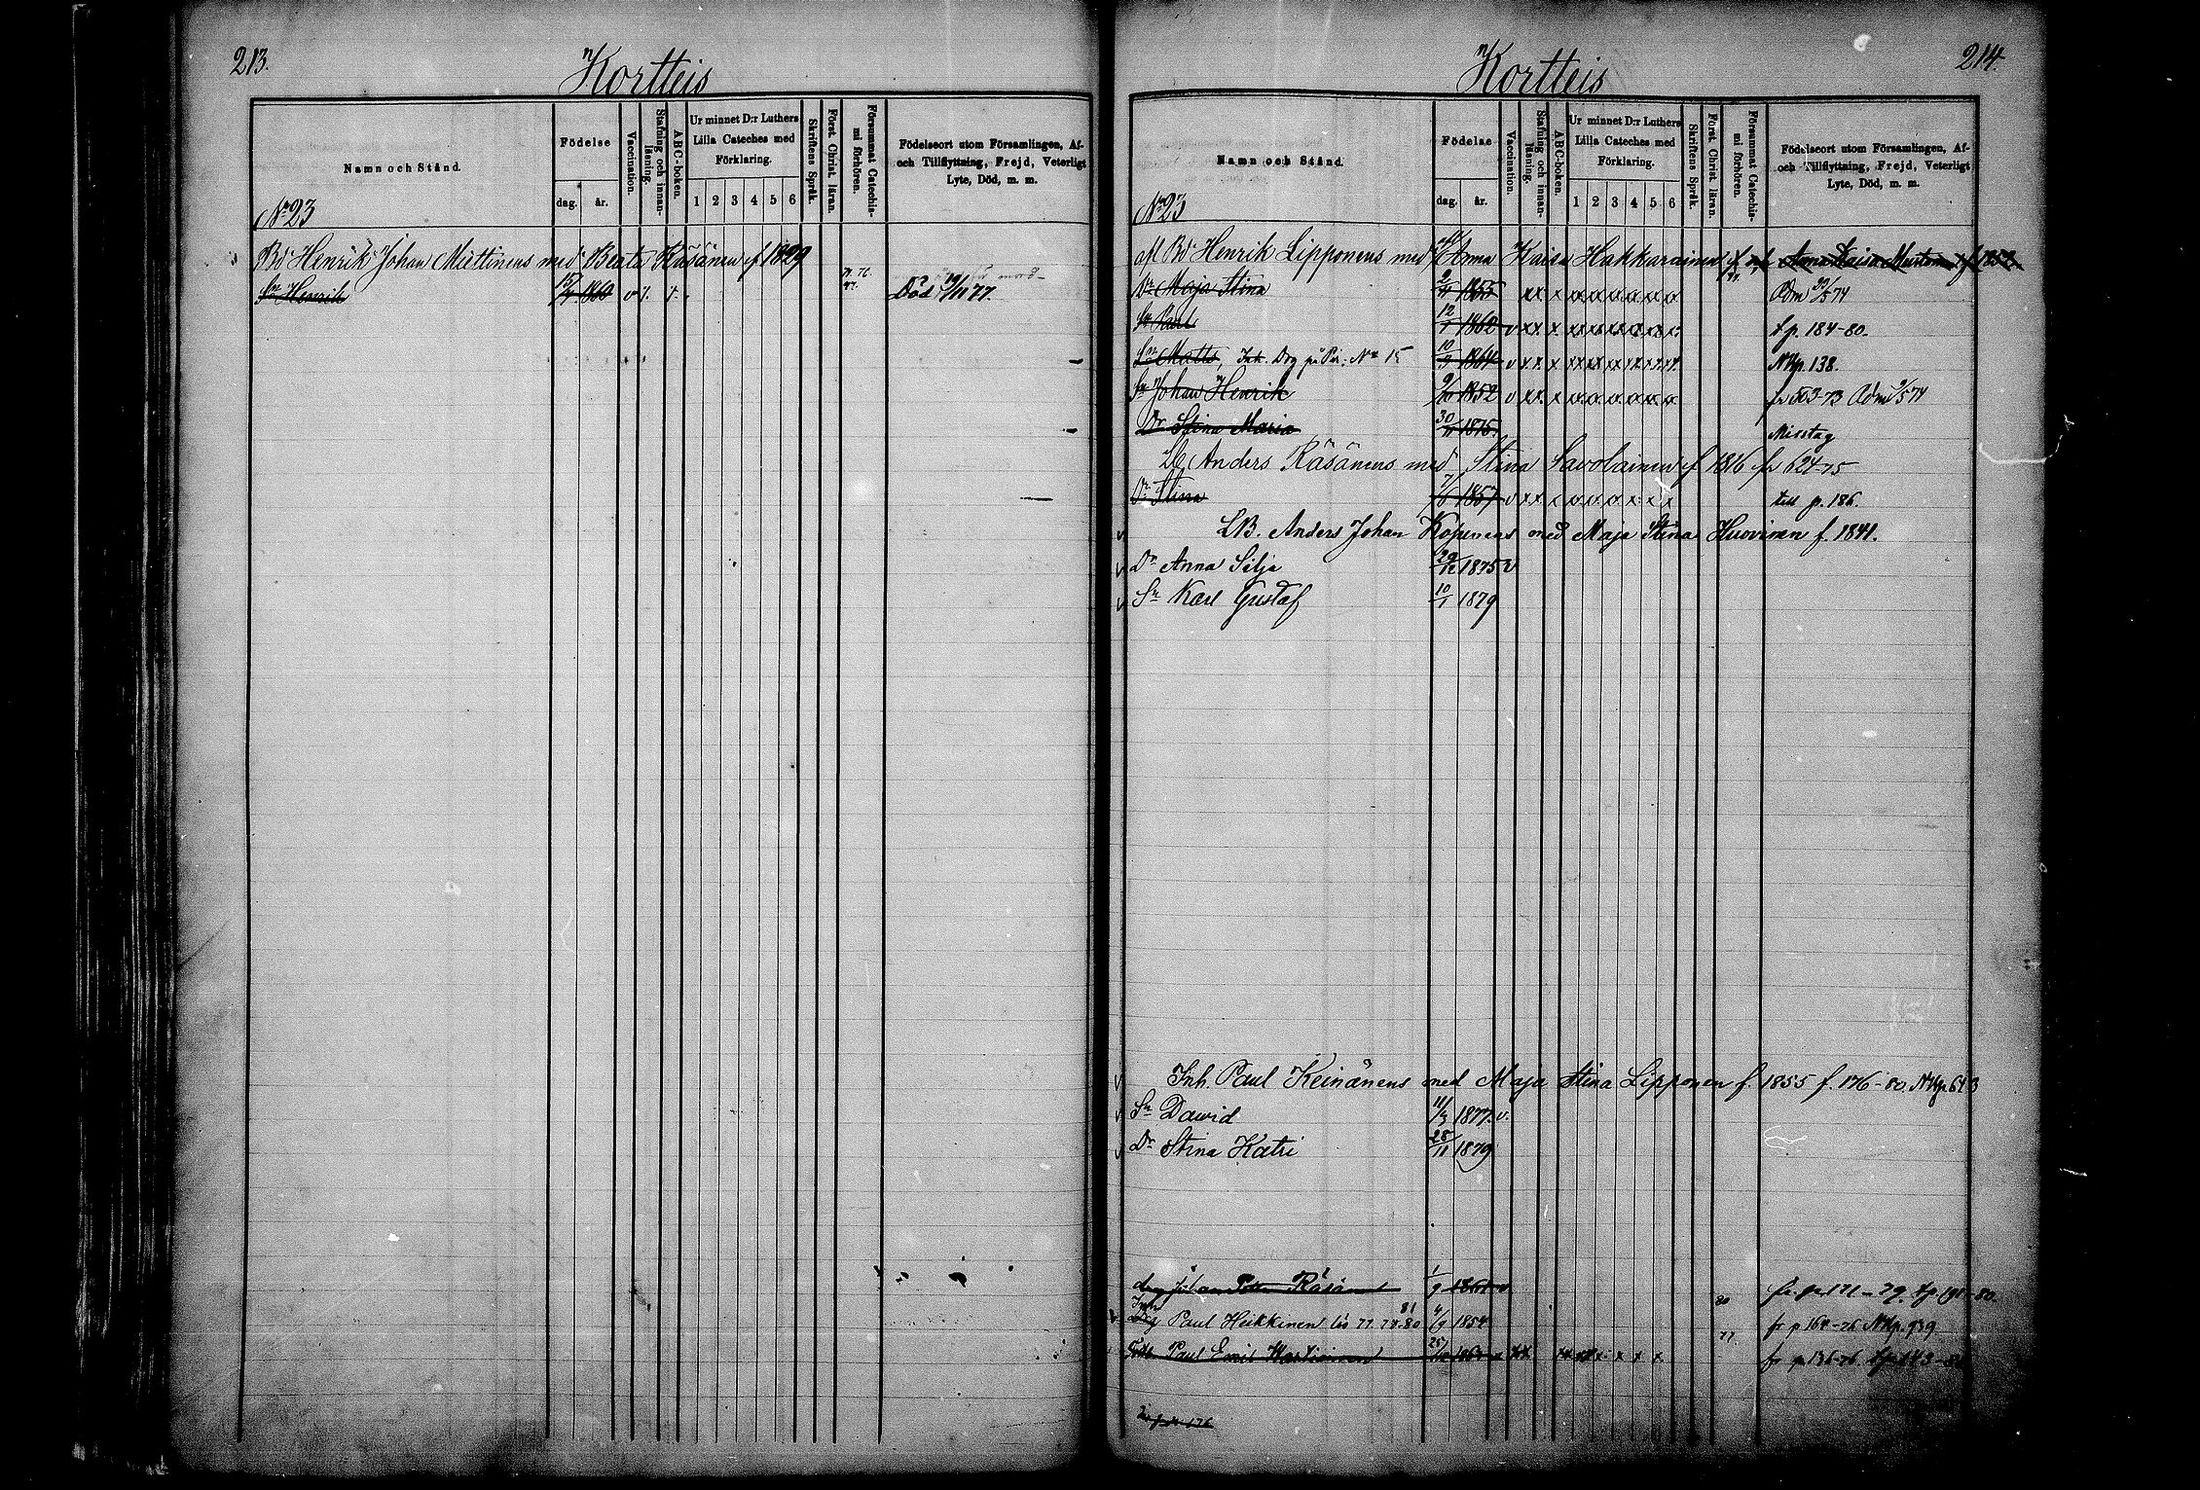 213.
Kortteis
Namn och Stånd.
Födelse
dag. år.
Vaccination.
Stafning och innanläsning.
ABC-boken.
Ur minnet D:r Luthers Lilla Cateches med Förklaring.
1 2 3 4 5 6
Skriftens Språk.
Först. Christ. läran.
Försummat Catechismi förhören.
Födelseort utom Församlingen, Af- och Tillflyttning, Frejd, Veterligt Lyte, Död, m. m.
No 23
Bd Henrik Johan Miettinens med Beata Räsänen f 1829
Sn Henrik 1860 v Död 77
214.
Kortteis
Namn och Stånd.
Födelse
dag. år.
Vaccination.
Stafning och innanläsning.
ABC-boken.
Ur minnet D:r Luthers Lilla Cateches med Förklaring.
1 2 3 4 5 6
Skriftens Språk.
Först. Christ. läran.
Försummat Catechismi förhören.
Födelseort utom Församlingen, Af- och Tillflyttning, Frejd, Veterligt Lyte, Död, m. m.
No 23
afl Bd Henrik Lipponens med Anna Kaisa Hakkarainen
Dr Maja Stina 1855 Adm 74
Sn Paul 12/1 1862 v t p. 184-80.
Sn Matts, Inh. Drg på No 15 10/9 1864 v NKp. 138.
Sn Johan Henrik 1852 v fr 503-73 Adm 74
Dr Stina Maria 30/11 1875 Misstag
Anders Räsänens med Stina Savolainen f 1816 fr 624-75
Dr Stina 1857 v till p. 186.
LB. Anders Johan Koponens med Maja Stina Huovinen f. 1841.
Dr Anna Silja 29/12 1875 v
Sn Karl Gustaf 10/1 1879
Inh. Paul Keinänens med Maja Stina Lipponen f. 1855 f. 176-80. NKp. 613
Sn Dawid 11/3 1877. v.
Dr Stina Katri 28/11 1879
Johan Räsänen 1/9 1861 v 80 fr. p. 171-79.
Inh Paul Heikkinen 81 4/9 1854 fr p 164-76 NKp. 939
Paul Emil 77 fr p 136-76